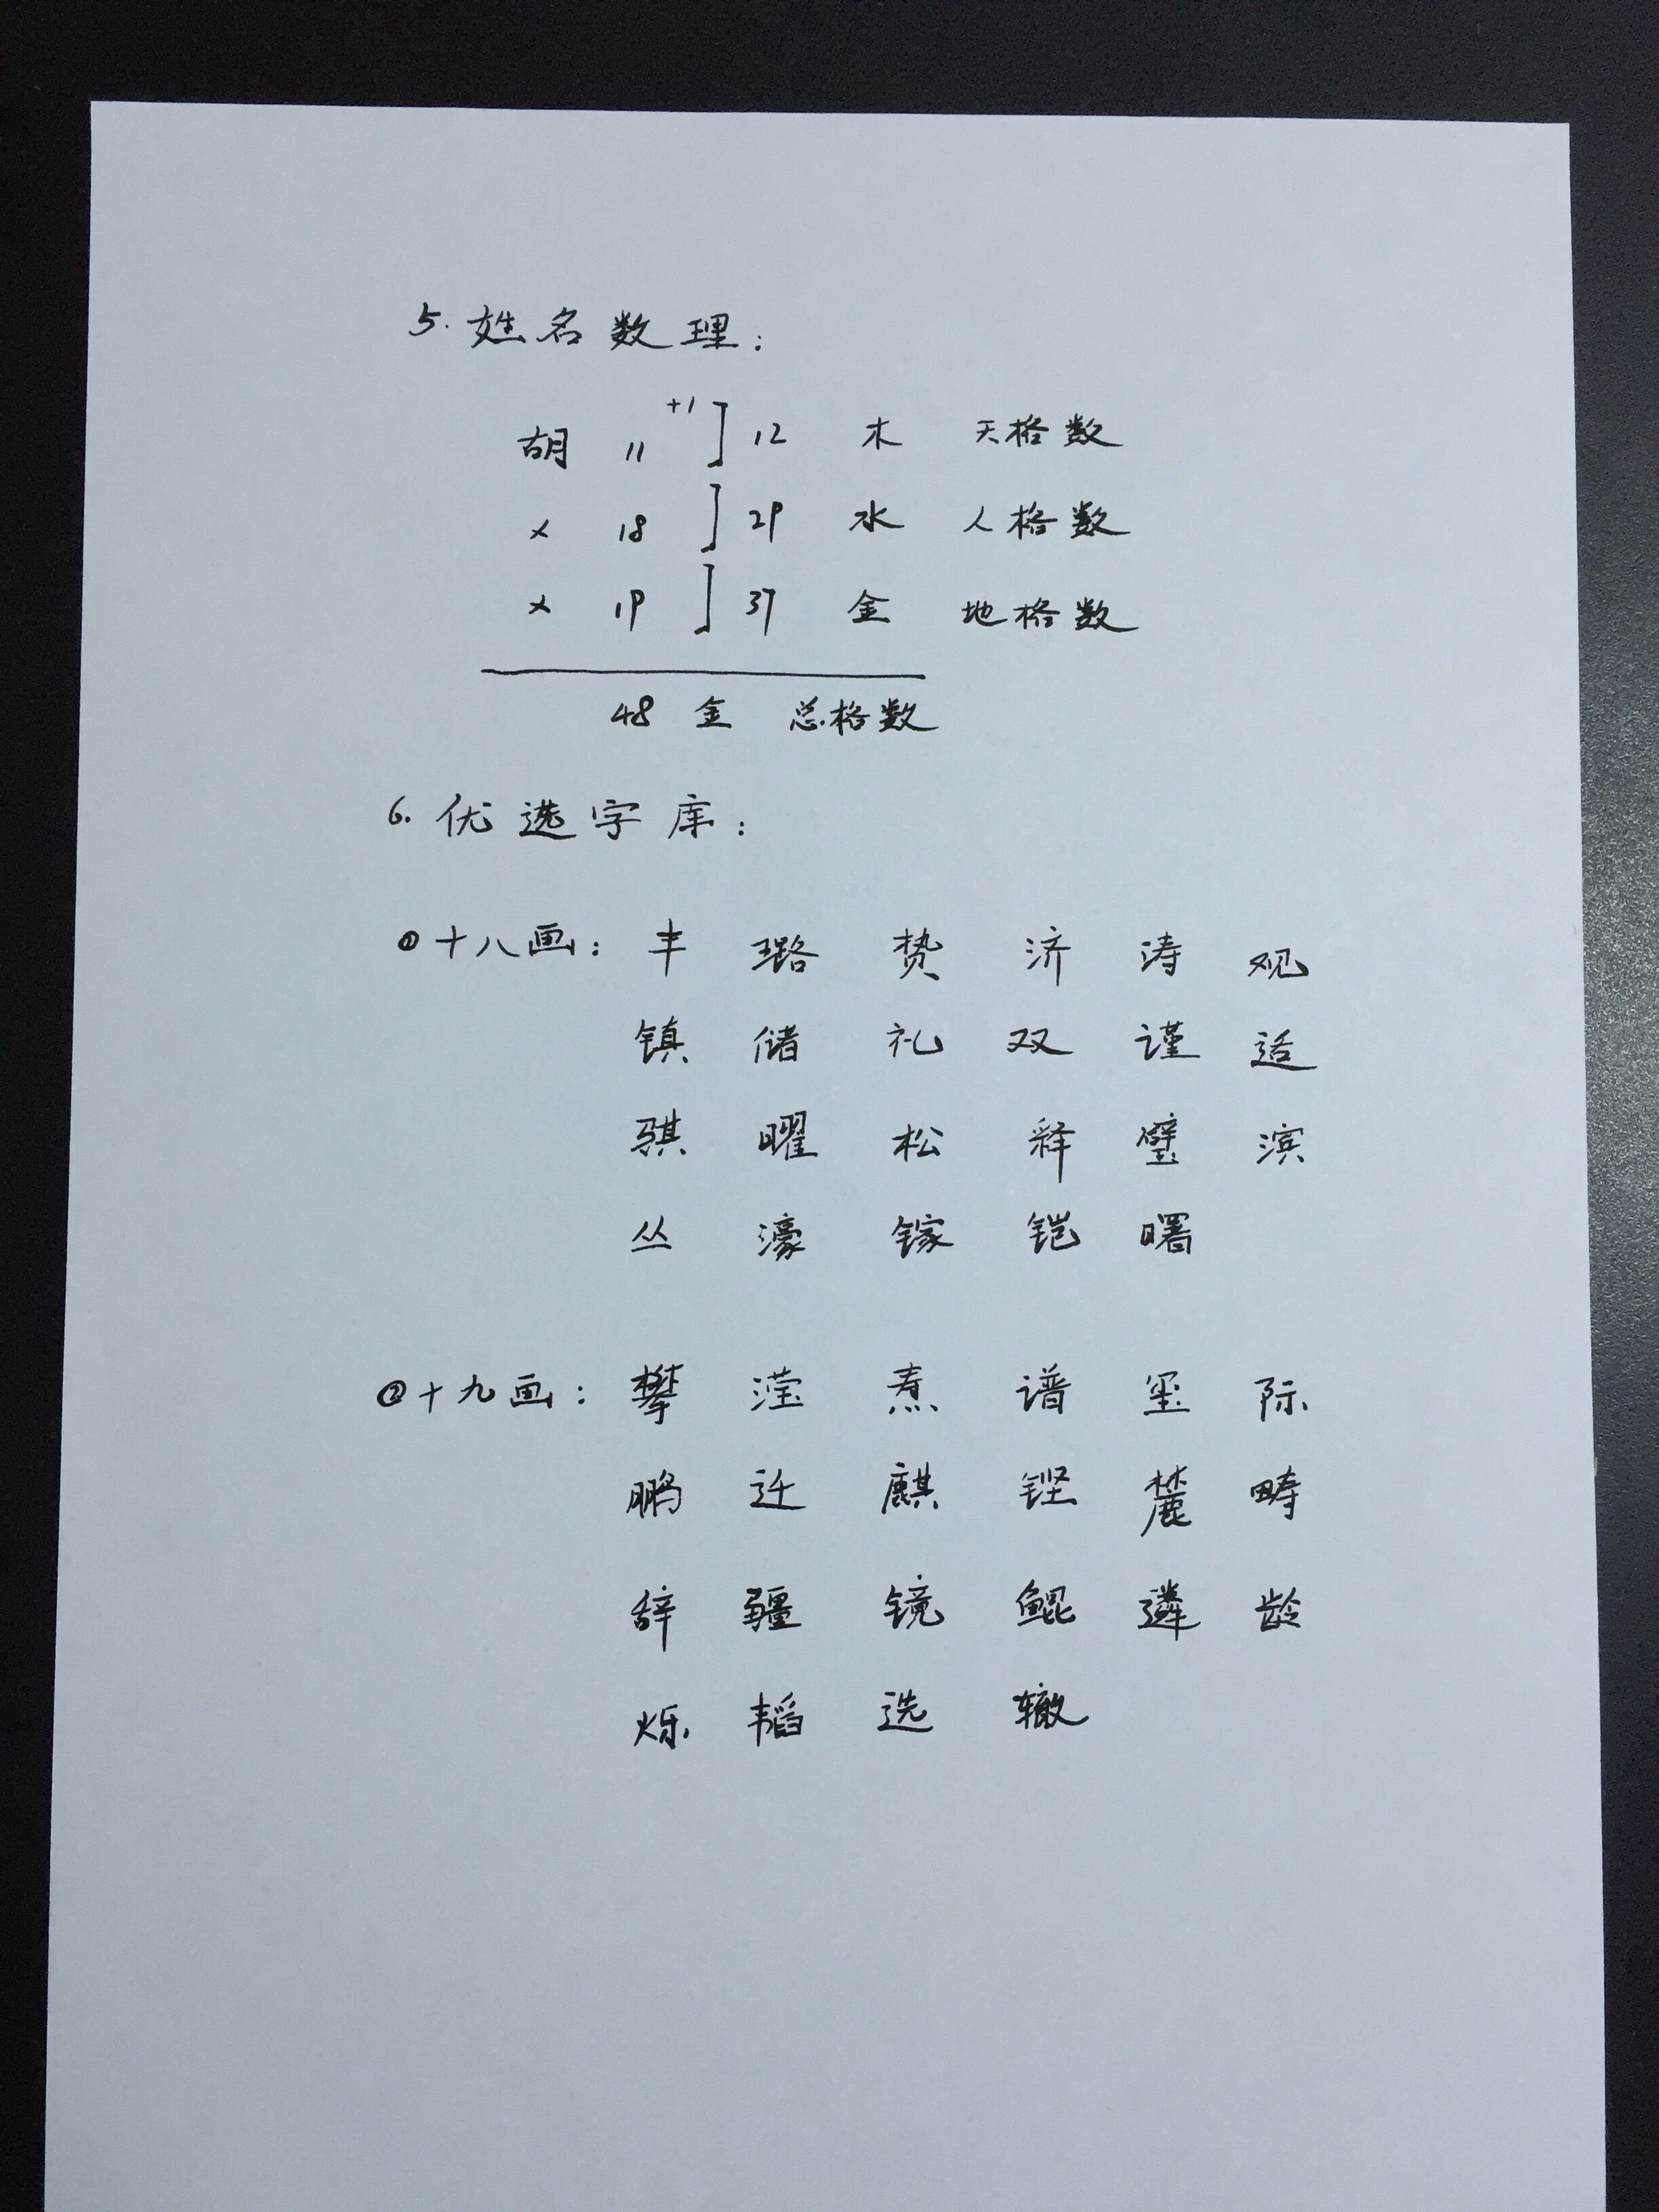 5. 姓名数理:
胡 11 +1 ] 12 木 天格数
× 18 ] 29 水 人格数
× 19 ] 37 金 地格数
48 金 总格数
6. 优选字库:
①十八画: 丰 璐 贽 济 涛 观
镇 储 礼 双 谨 适
骐 曜 松 释 璧 滨
丛 濠 镓 铠 曙
②十九画: 攀 滢 焘 谱 玺 际
鹏 迁 麒 铿 麓 畴
辞 疆 镜 鲲 遴 龄
烁 韬 选 辙